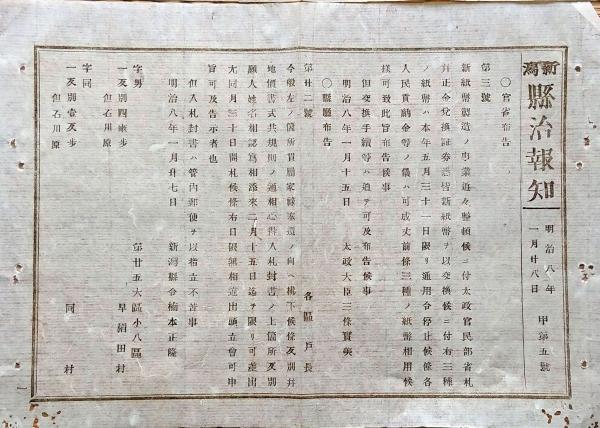 新潟縣治報知
明治八年
一月廿八日
甲第五號
○官省布告
第三號
新紙幣製造ノ事業追々整頓候ニ付太政官民部省札
幷正金兌換証券悉皆新紙幣ヲ以交換候ニ付右三種
ノ紙幣ハ本年五月三十一日限リ通用令停止候條各
人民貢納金等ノ儀ハ可成丈前條三種ノ紙幣相用候
樣可致此旨布告候事
但交換手續等ハ追テ可及布告候事
明治八年一月十五日 太政大臣三條實美
○縣廳布告
第廿二號 各區戸長
今般左ノ箇所貫屬家祿奉還ノ向ヘ拂下候條反別幷
地價書式共規則ノ通相心得入札封書ノ上箇所反別
願人姓名相認寫相添來二月十五日迄ヲ限リ可差出
尤同月三十日開札候條右日限無相違出頭立會可申
旨可及告示者也
但入札封書ハ管内郵便ヲ以指立不苦事
明治八年一月廿七日 新潟縣令楠本正隆
第廿五大區小八區
字男 早稻田村
一反別四畝步
但石川原
字同 同村
一反別壹反步
但石川原